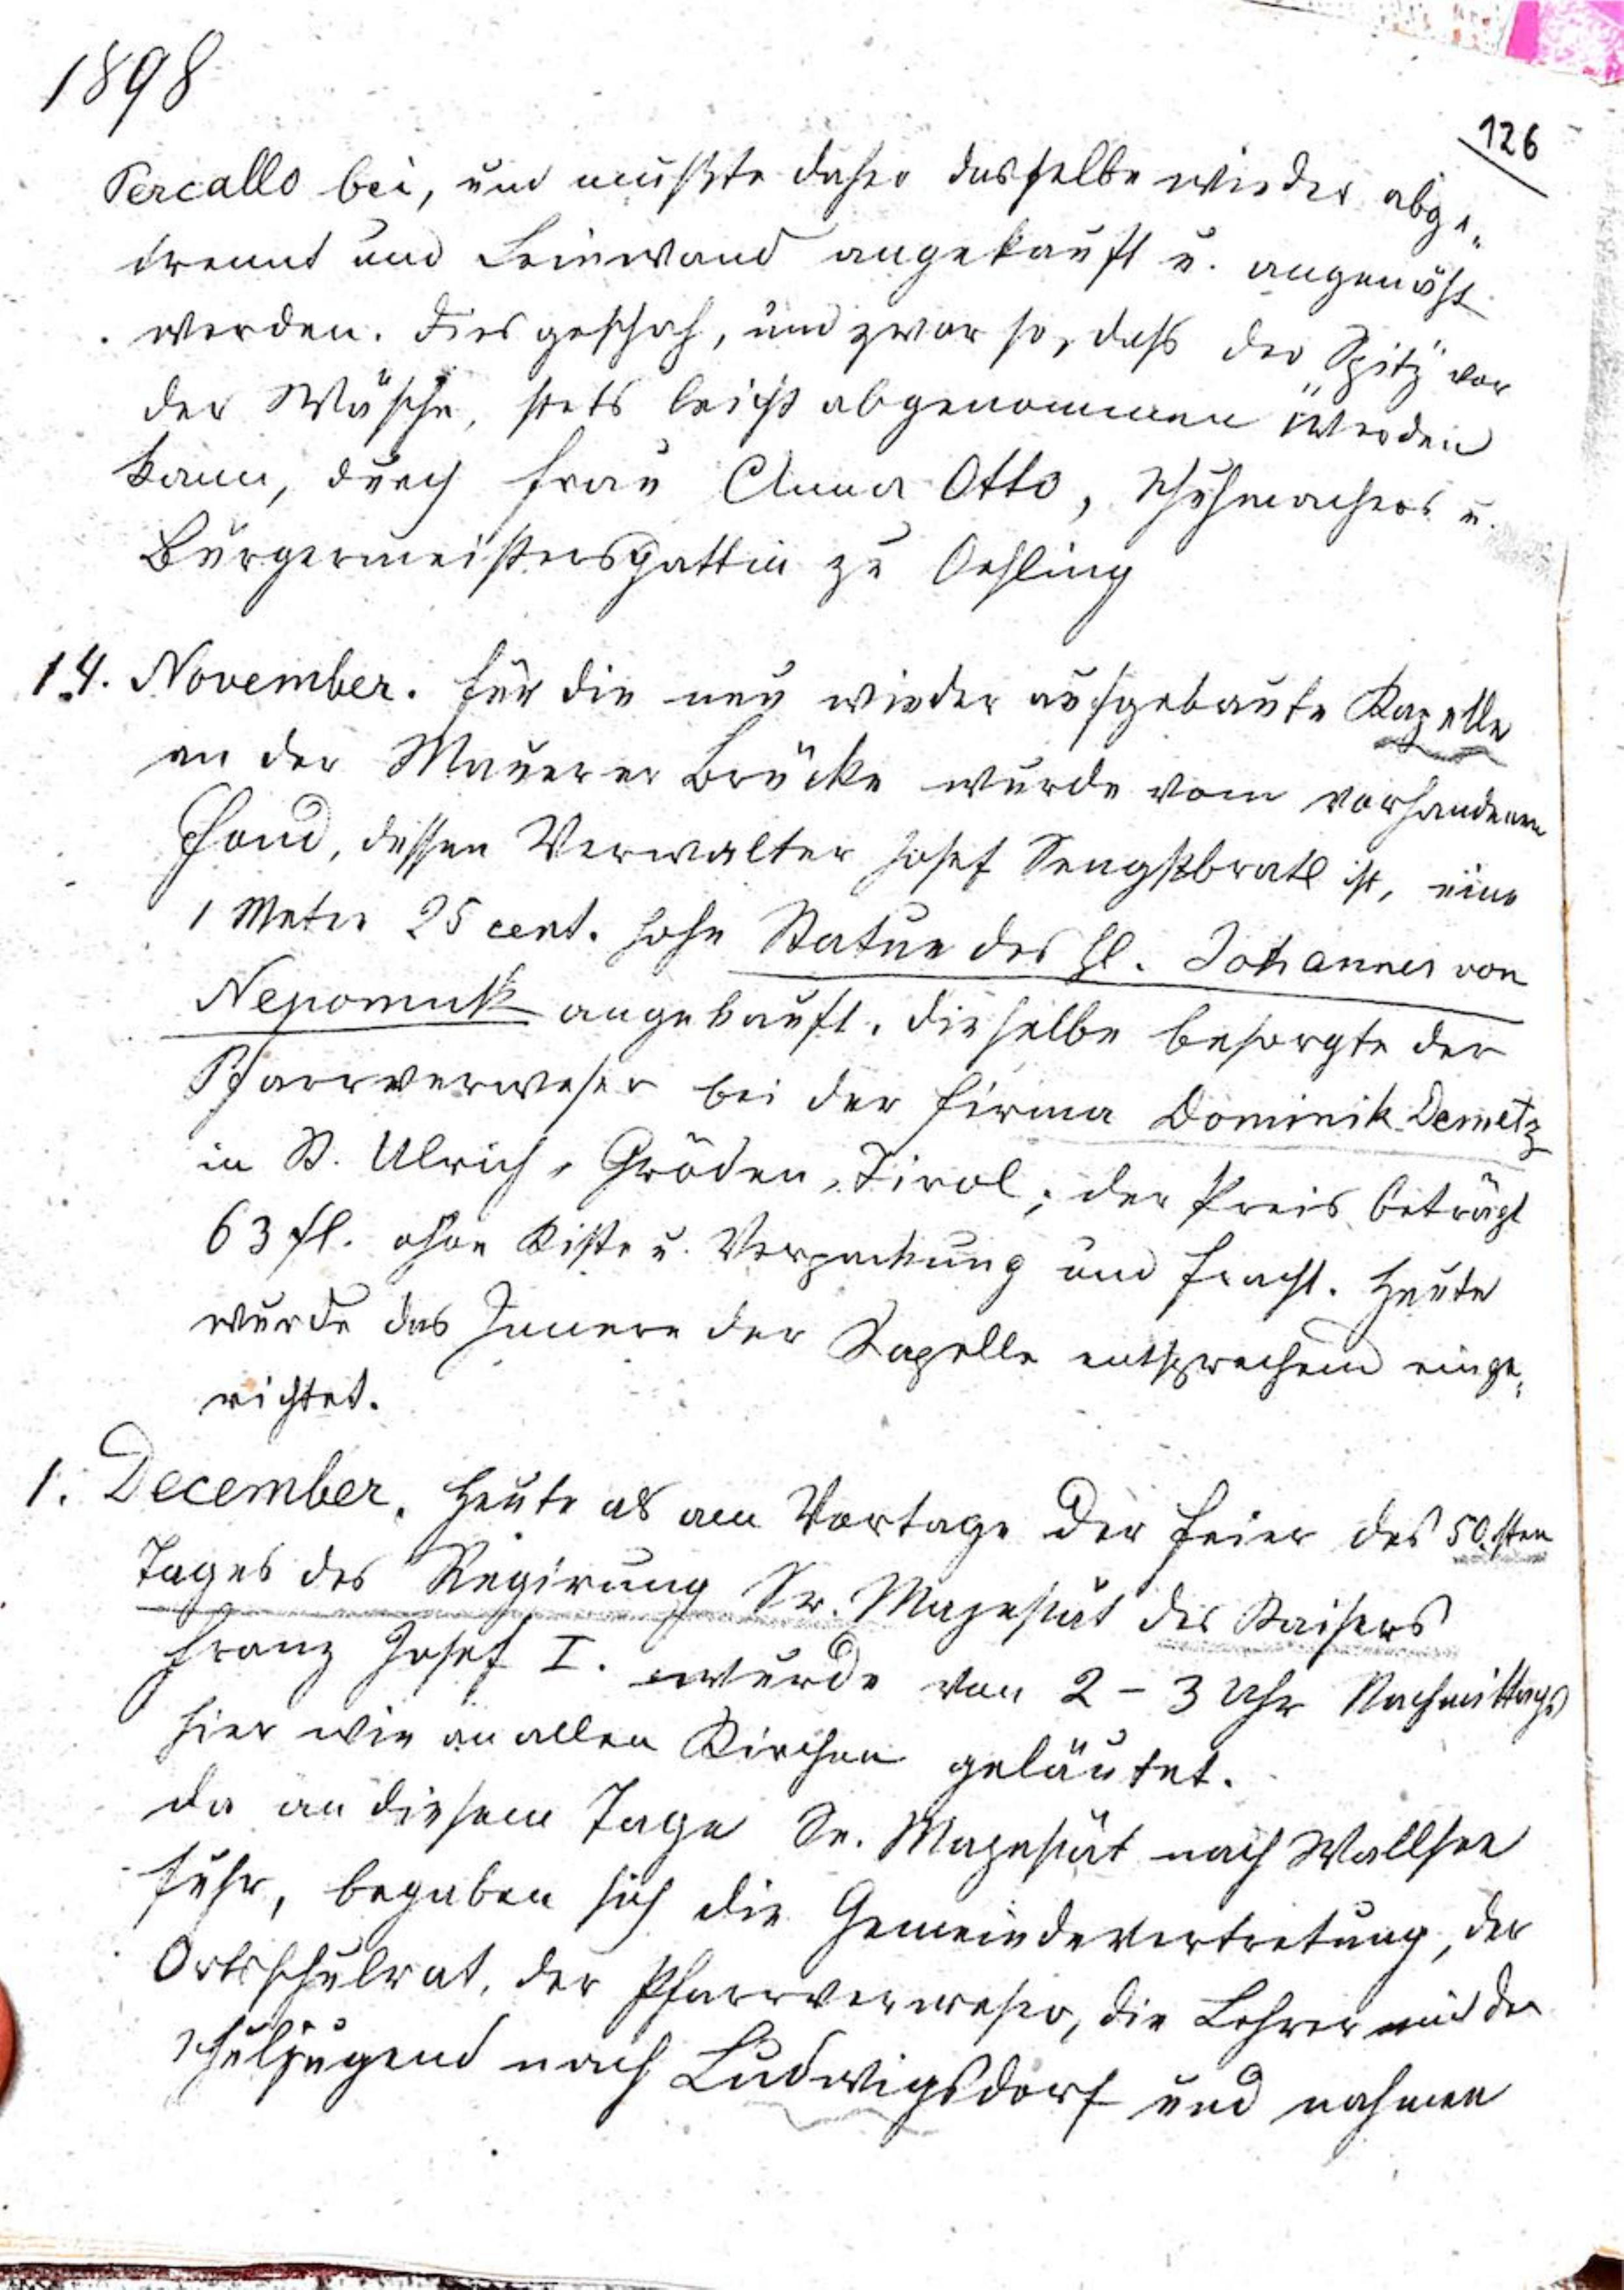 1898
126
Percallo bei, und mußte daher dasselbe wieder abge„
trennt und Leinwand angekauft u. angenäht
werden. Dies geschah, und zwar so, daß der „Spitz" vor
der Wäsche, stets leicht abgenommen werden
kann, durch Frau Anna Otto, Schuhmachers u.
Bürgermeistersgattin zu Oehling
14. November. Für die neu wieder aufgebaute Kapelle
an der Mauerer Brücke wurde vom vorhandenen
Fond, dessen Verwalter Josef Sengstbratl ist, eine
1 Meter 25 cent. hohe Statue des hl. Johannes von
Nepomuk angekauft. Dieselbe besorgte der
Pfarrverweser bei der Firma Dominik Demetz
in St. Ulrich, Gröden, Tirol; der Preis beträgt
63 fl. ohne Kiste u. Verpackung und Fracht. Heute
wurde das Innere der Kapelle entsprechend einge„
richtet.
1. December. Heute als am Vortage der Feier des 50.sten
Tages des Regirung Sr. Majestät des Kaisers
Franz Josef I. wurde von 2 - 3 Uhr Nachmittags
hier wie an allen Kirchen geläutet.
Da an diesem Tage Se. Majestät nach Wallsee
fuhr, begaben sich die Gemeindevertretung, der
Ortsschulrat, der Pfarrverweser, die Lehrer mit der
Schuljugend nach Ludwigsdorf und nahmen